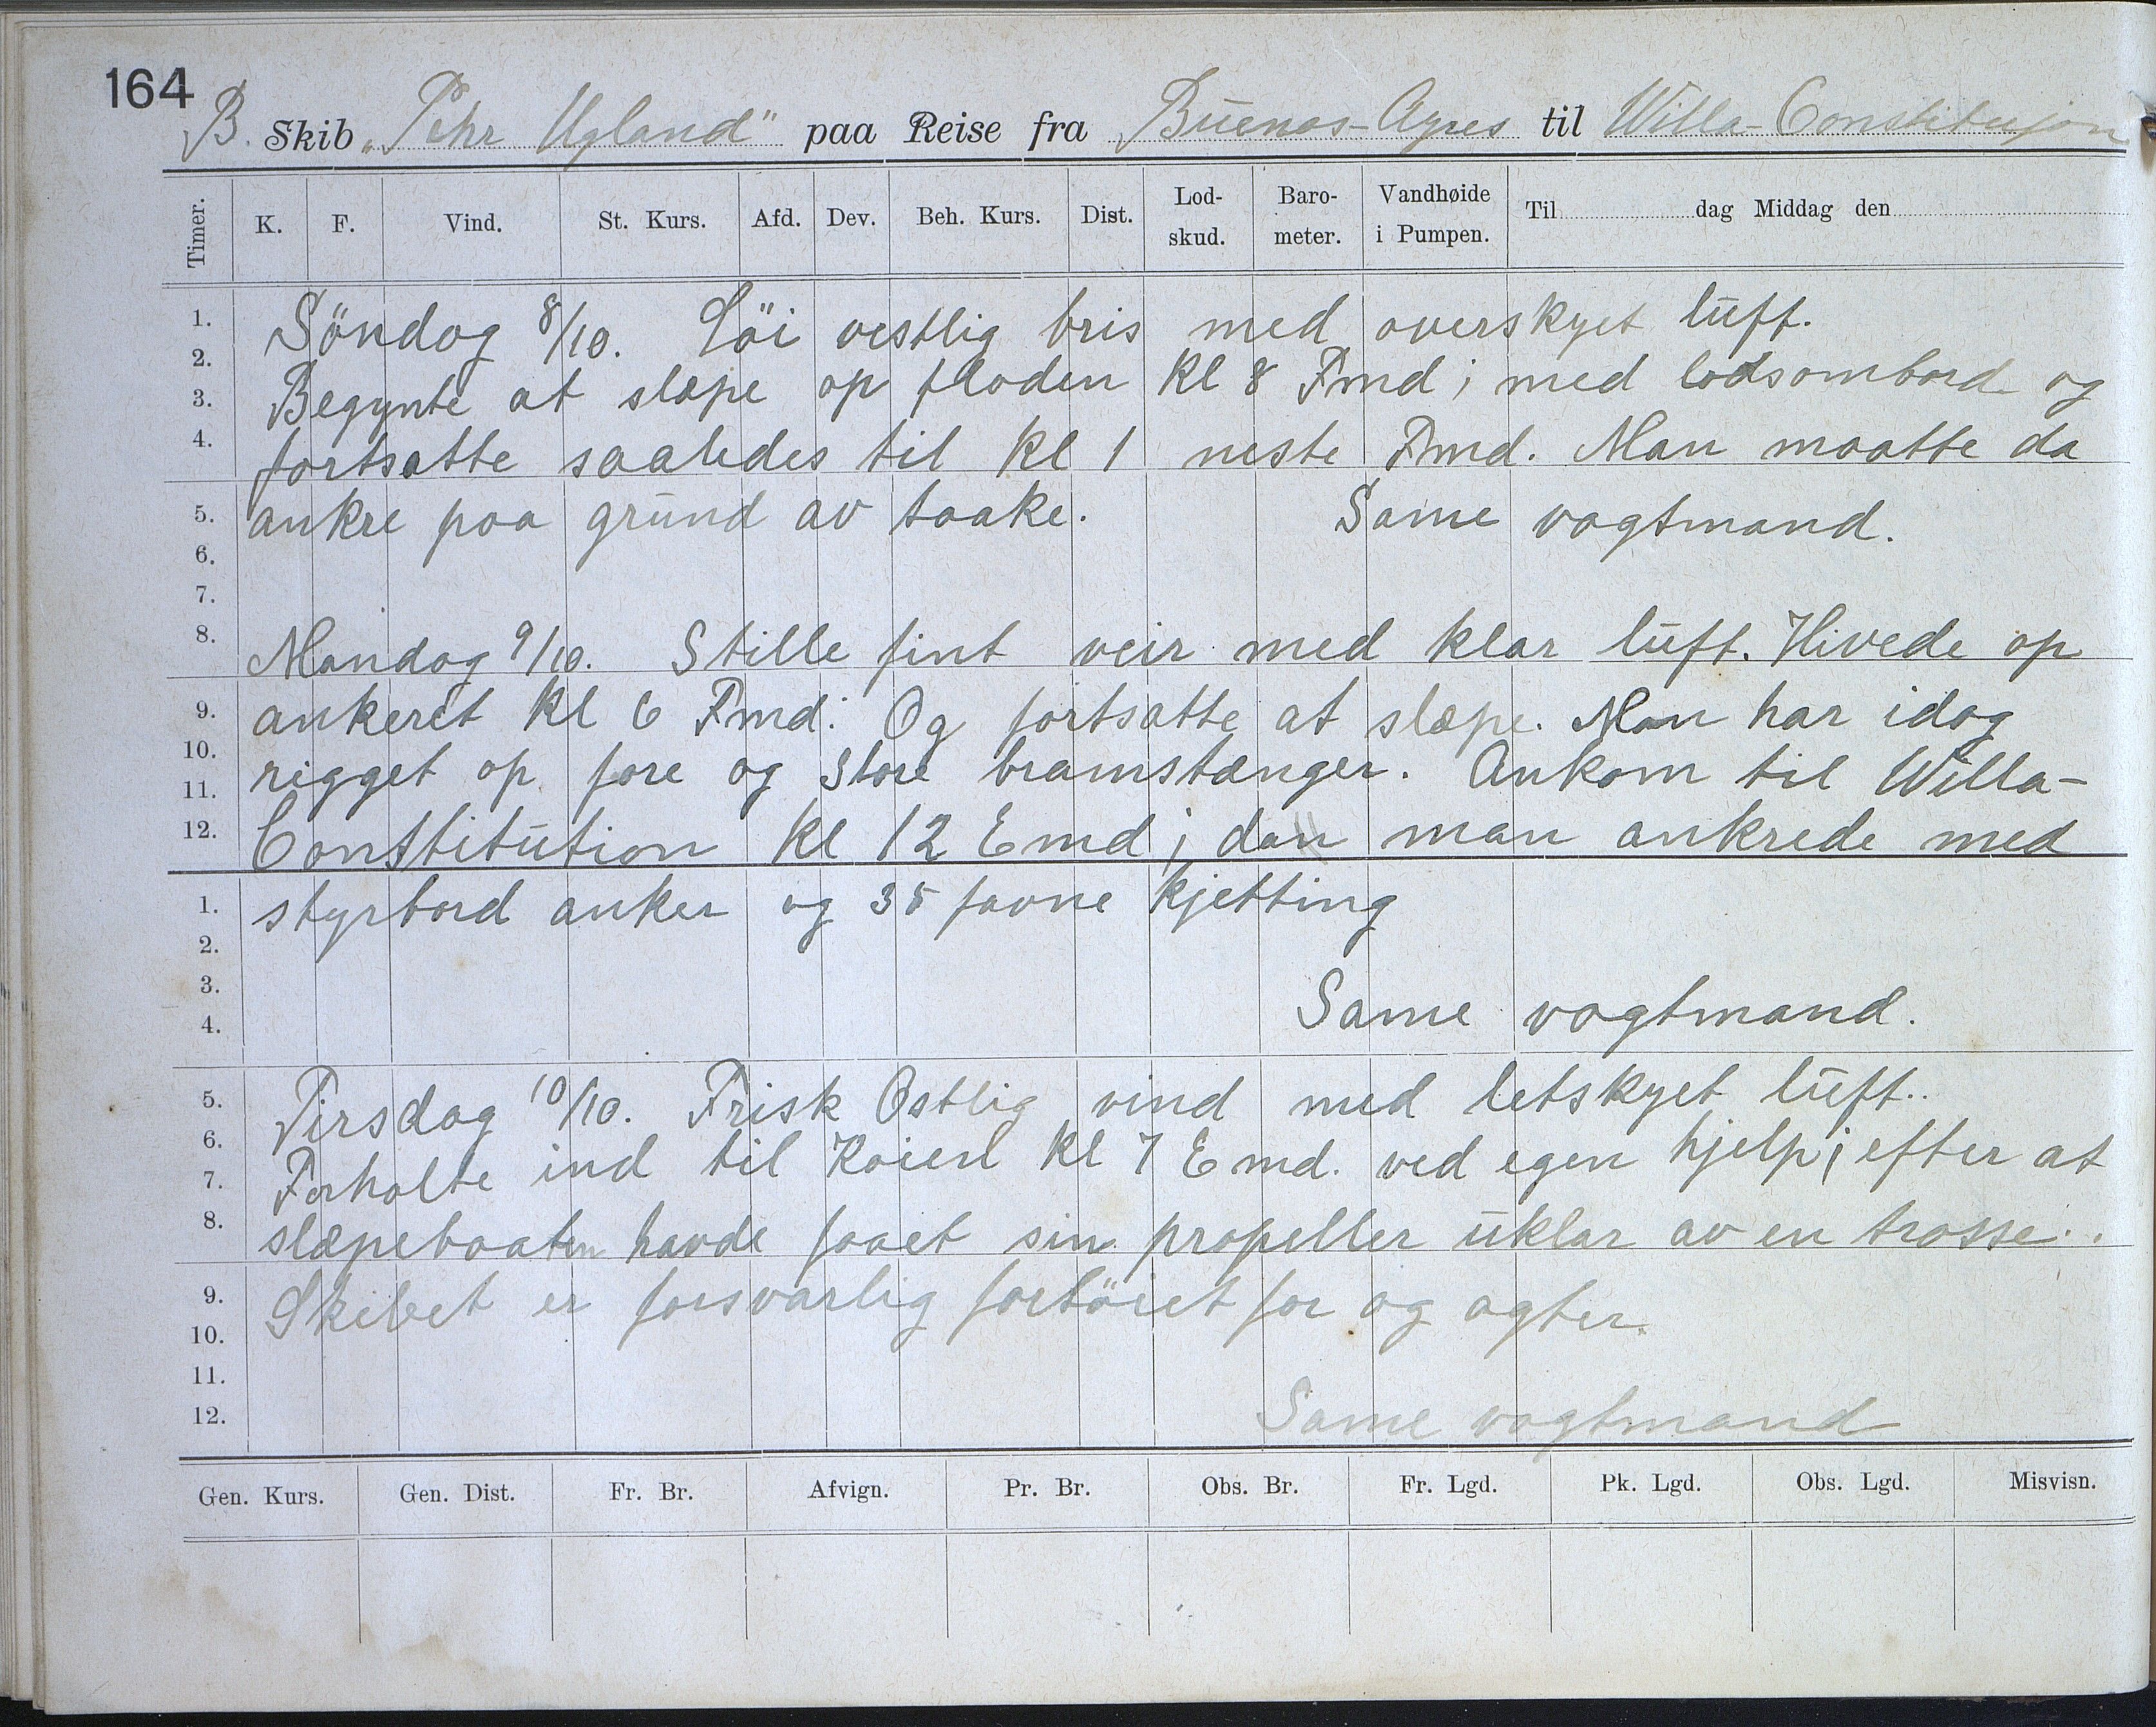 164
B. Skib „Pehr Ugland" paa Reise fra Buenos-Ayres til Willa-Constitusjon
Timer. K. F. Vind. St. Kurs. Afd. Dev. Beh. Kurs. Dist. Lod-skud. Baro-meter. Vandhøide i Pumpen. Til dag Middag den
1. Söndag 8/10. Löi vestlig bris med overskyet luft.
2.
3. Begynte at slæpe op floden Kl 8 Fmd; med lodsombord og
4. fortsatte saaledes til Kl 1 neste Fmd. Man maatte da
5. ankre paa grund av taake. Same vagtmand.
6.
7.
8. Mandag 9/10. Stille fint veir med klar luft. Hivede op
9. ankeret Kl 6 Fmd. Og fortsatte at slæpe. Man har idag
10. rigget op fore og store bramstænger. Ankom til Willa-
11.
12. Constitution Kl 12 Emd; dan man ankrede med
1. styrbord anker og 35 favne kjetting
2.
3.
4. Same vagtmand.
5. Tirsdag 10/10. Frisk Ostlig vind med letskyet luft..
6.
7. Forhalte ind til Kaien Kl 7 Emd. ved egen hjelp; efter at
8. slæpebaaten havde faaet sin propeller uklar av en trosse..
9. Skibet er forsvarlig fortöiet for og agter.
10.
11.
12. Same vagtmand
Gen. Kurs. Gen. Dist. Fr. Br. Afvign. Pr. Br. Obs. Br. Fr. Lgd. Pk. Lgd. Obs. Lgd. Misvisn.